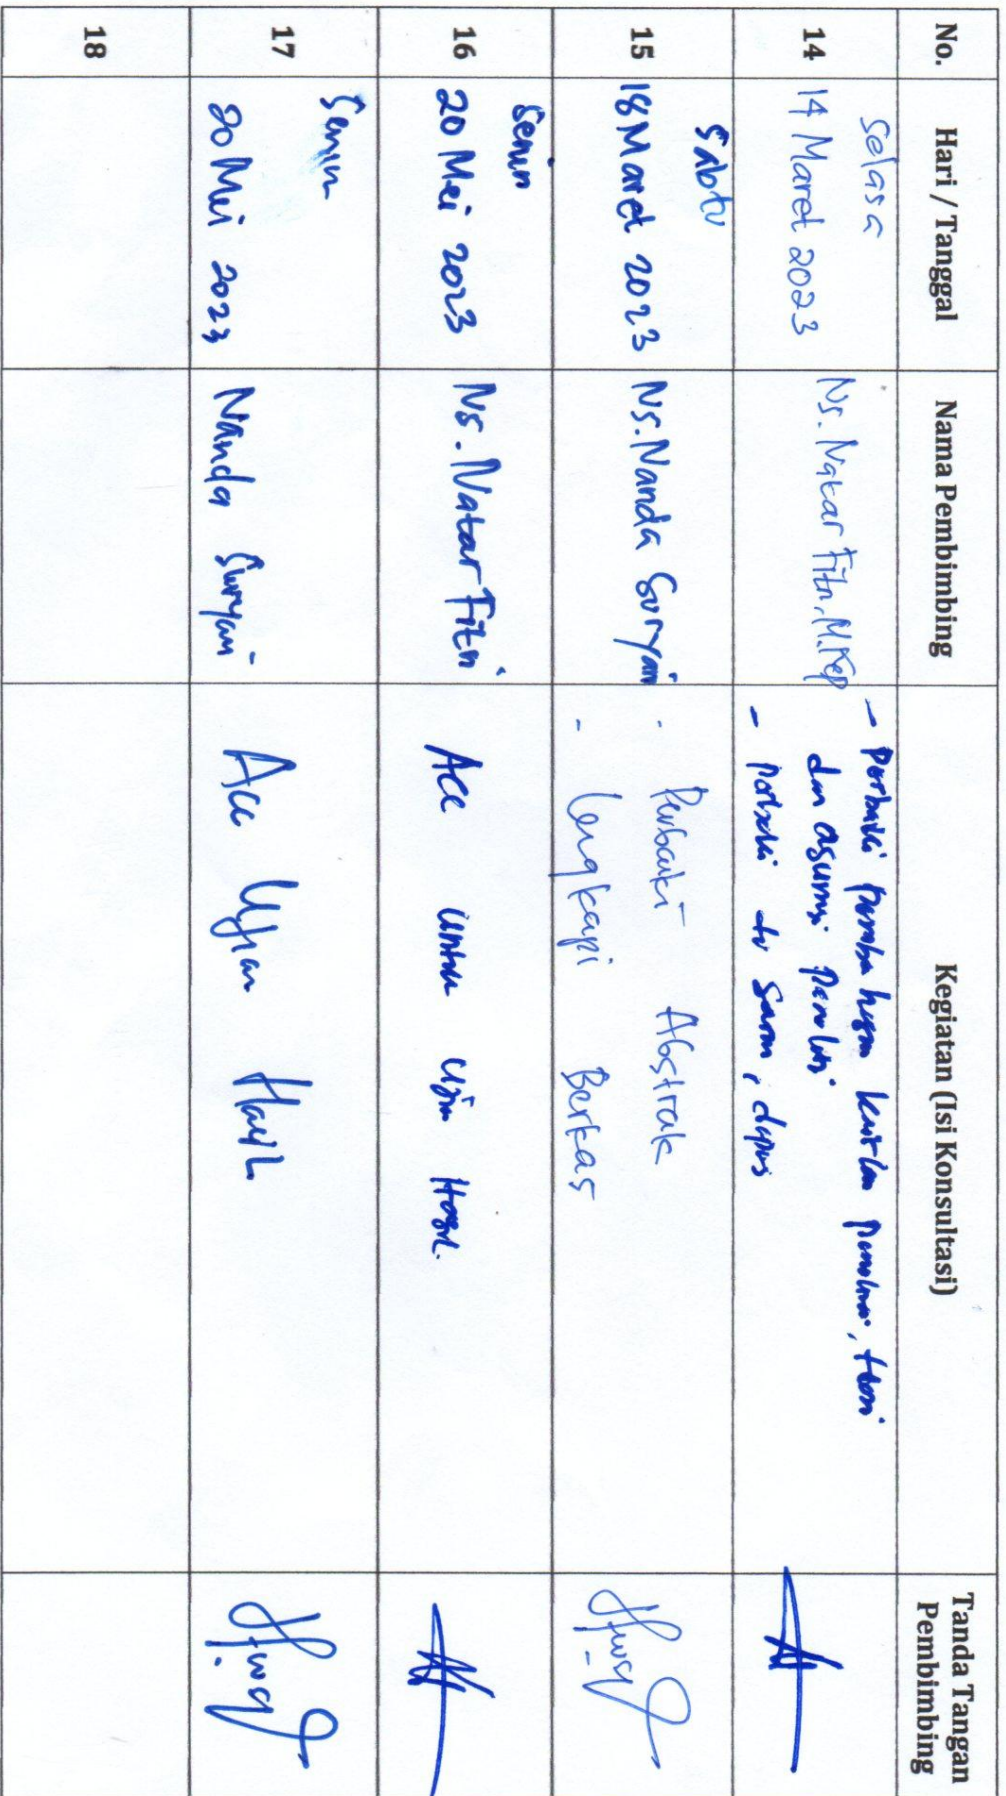 No. Hari / Tanggal Nama Pembimbing Kegiatan (Isi Konsultasi) Tanda Tangan Pembimbing
14
Selasa
14 Maret 2023
Ns. Natar Fitri, M.Kep
- Perbaiki
dan asumsi
- saran, dapus
15
Sabtu
18 Maret 2023
Ns. Nanda Suryani
- Perbaiki Abstrak
- Lengkapi Berkas
16
Senin
20 Mei 2023
Ns. Natar Fitri
Acc untuk Ujian Hasil.
17
Senin
20 Mei 2023
Nanda Suryani
Acc Ujian Hasil
18